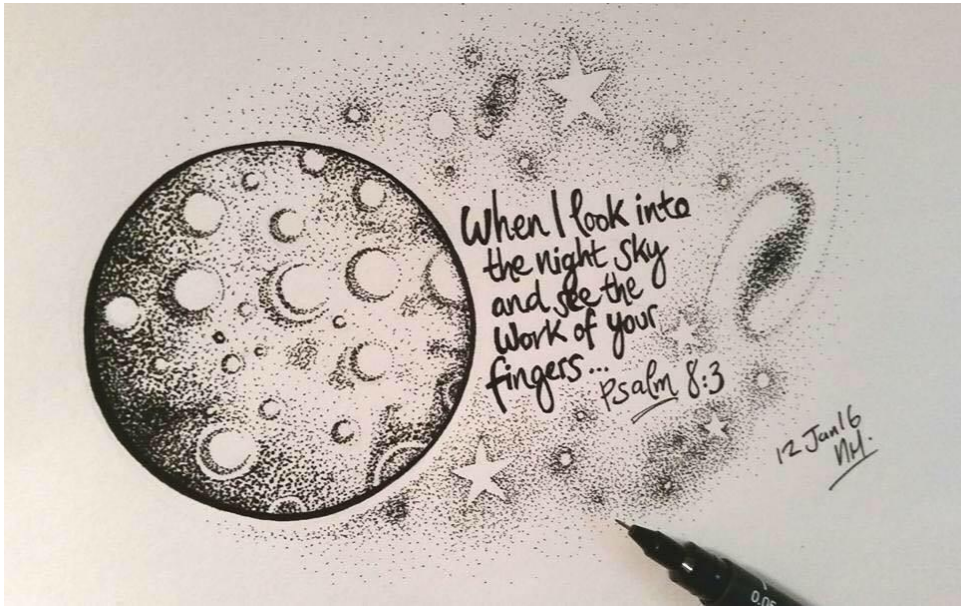 When I look into
the night sky
and see the
work of your
fingers...
Psalm 8:3
12 Jan 16
NH.
0.05